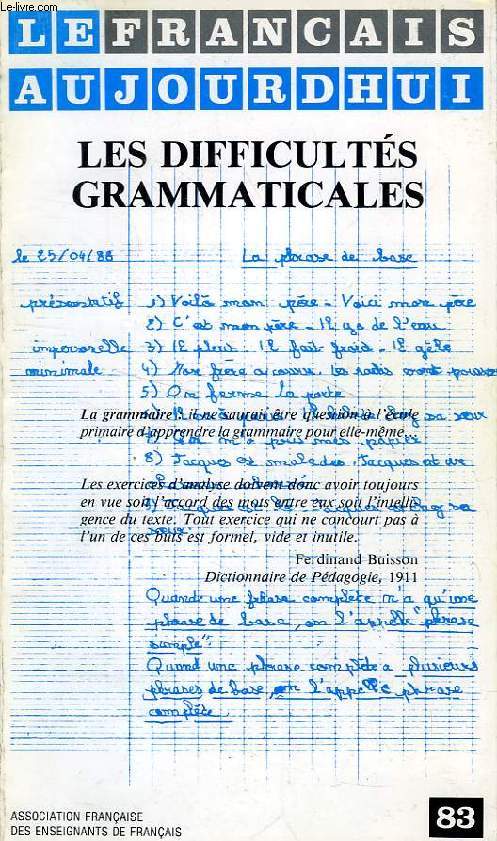 Le-livre.com
LE FRANCAIS
AUJOURDHUI
LES DIFFICULTÉS
GRAMMATICALES
le 25/04/88 La phrase de base
présentatif 1) Voilà mon père - Voici mon père
2) C'est mon père - Il y a de l'eau
impersonnelle 3) Il pleut. Il fait froid - Il gèle
minimale 4) Mon frère accourt. Les radis sont
5) On ferme la porte
La grammaire: il ne saurait être question à l'école
primaire d'apprendre la grammaire pour elle-même.
8) Jacques est malade. Jacques est
Les exercices d'analyse doivent donc avoir toujours
en vue soit l'accord des mots entre eux soit l'intelli-
gence du texte. Tout exercice qui ne concourt pas à
l'un de ces buts est formel, vide et inutile.
Ferdinand Buisson
Dictionnaire de Pédagogie, 1911
Quand une phrase complète n'a qu'une
phrase de base, on l'appelle "phrase
simple".
Quand une phrase complète a plusieurs
phrases de base, on l'appelle phrase
complète
ASSOCIATION FRANÇAISE
DES ENSEIGNANTS DE FRANÇAIS
83